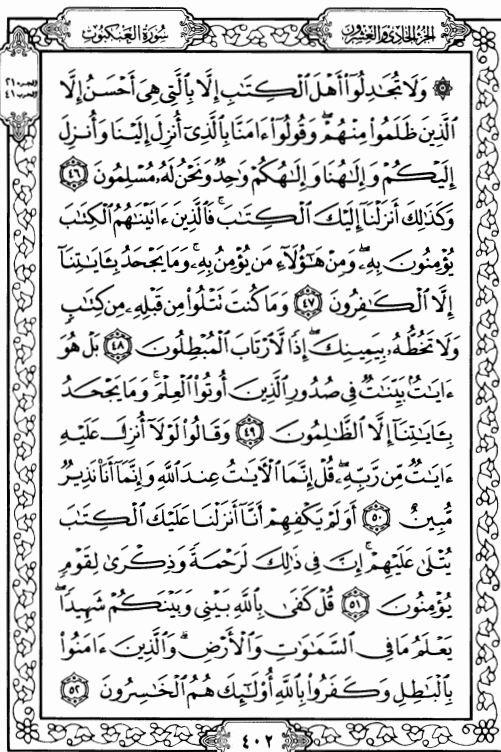 سُورَةُ العَنكَبُوتِ
الجُزءُ الحَادِي وَالعِشرُونَ
الجزء ٢١
الحزب ٤١
۞ وَلَا تُجَٰدِلُوٓاْ أَهْلَ ٱلْكِتَٰبِ إِلَّا بِٱلَّتِى هِىَ أَحْسَنُ إِلَّا
ٱلَّذِينَ ظَلَمُواْ مِنْهُمْ ۖ وَقُولُوٓاْ ءَامَنَّا بِٱلَّذِىٓ أُنزِلَ إِلَيْنَا وَأُنزِلَ
إِلَيْكُمْ وَإِلَٰهُنَا وَإِلَٰهُكُمْ وَٰحِدٌ وَنَحْنُ لَهُۥ مُسْلِمُونَ ٤٦
وَكَذَٰلِكَ أَنزَلْنَآ إِلَيْكَ ٱلْكِتَٰبَ ۚ فَٱلَّذِينَ ءَاتَيْنَٰهُمُ ٱلْكِتَٰبَ
يُؤْمِنُونَ بِهِۦ ۖ وَمِنْ هَٰٓؤُلَآءِ مَن يُؤْمِنُ بِهِۦ ۚ وَمَا يَجْحَدُ بِـَٔايَٰتِنَآ
إِلَّا ٱلْكَٰفِرُونَ ٤٧ وَمَا كُنتَ تَتْلُواْ مِن قَبْلِهِۦ مِن كِتَٰبٍ
وَلَا تَخُطُّهُۥ بِيَمِينِكَ ۖ إِذًا لَّٱرْتَابَ ٱلْمُبْطِلُونَ ٤٨ بَلْ هُوَ
ءَايَٰتٌۢ بَيِّنَٰتٌ فِى صُدُورِ ٱلَّذِينَ أُوتُواْ ٱلْعِلْمَ ۚ وَمَا يَجْحَدُ
بِـَٔايَٰتِنَآ إِلَّا ٱلظَّٰلِمُونَ ٤٩ وَقَالُواْ لَوْلَآ أُنزِلَ عَلَيْهِ
ءَايَٰتٌ مِّن رَّبِّهِۦ ۖ قُلْ إِنَّمَا ٱلْءَايَٰتُ عِندَ ٱللَّهِ وَإِنَّمَآ أَنَا۠ نَذِيرٌ
مُّبِينٌ ٥٠ أَوَلَمْ يَكْفِهِمْ أَنَّآ أَنزَلْنَا عَلَيْكَ ٱلْكِتَٰبَ
يُتْلَىٰ عَلَيْهِمْ ۚ إِنَّ فِى ذَٰلِكَ لَرَحْمَةً وَذِكْرَىٰ لِقَوْمٍ
يُؤْمِنُونَ ٥١ قُلْ كَفَىٰ بِٱللَّهِ بَيْنِى وَبَيْنَكُمْ شَهِيدًا ۖ
يَعْلَمُ مَا فِى ٱلسَّمَٰوَٰتِ وَٱلْأَرْضِ ۗ وَٱلَّذِينَ ءَامَنُواْ
بِٱلْبَٰطِلِ وَكَفَرُواْ بِٱللَّهِ أُوْلَٰٓئِكَ هُمُ ٱلْخَٰسِرُونَ ٥٢
٤٠٢